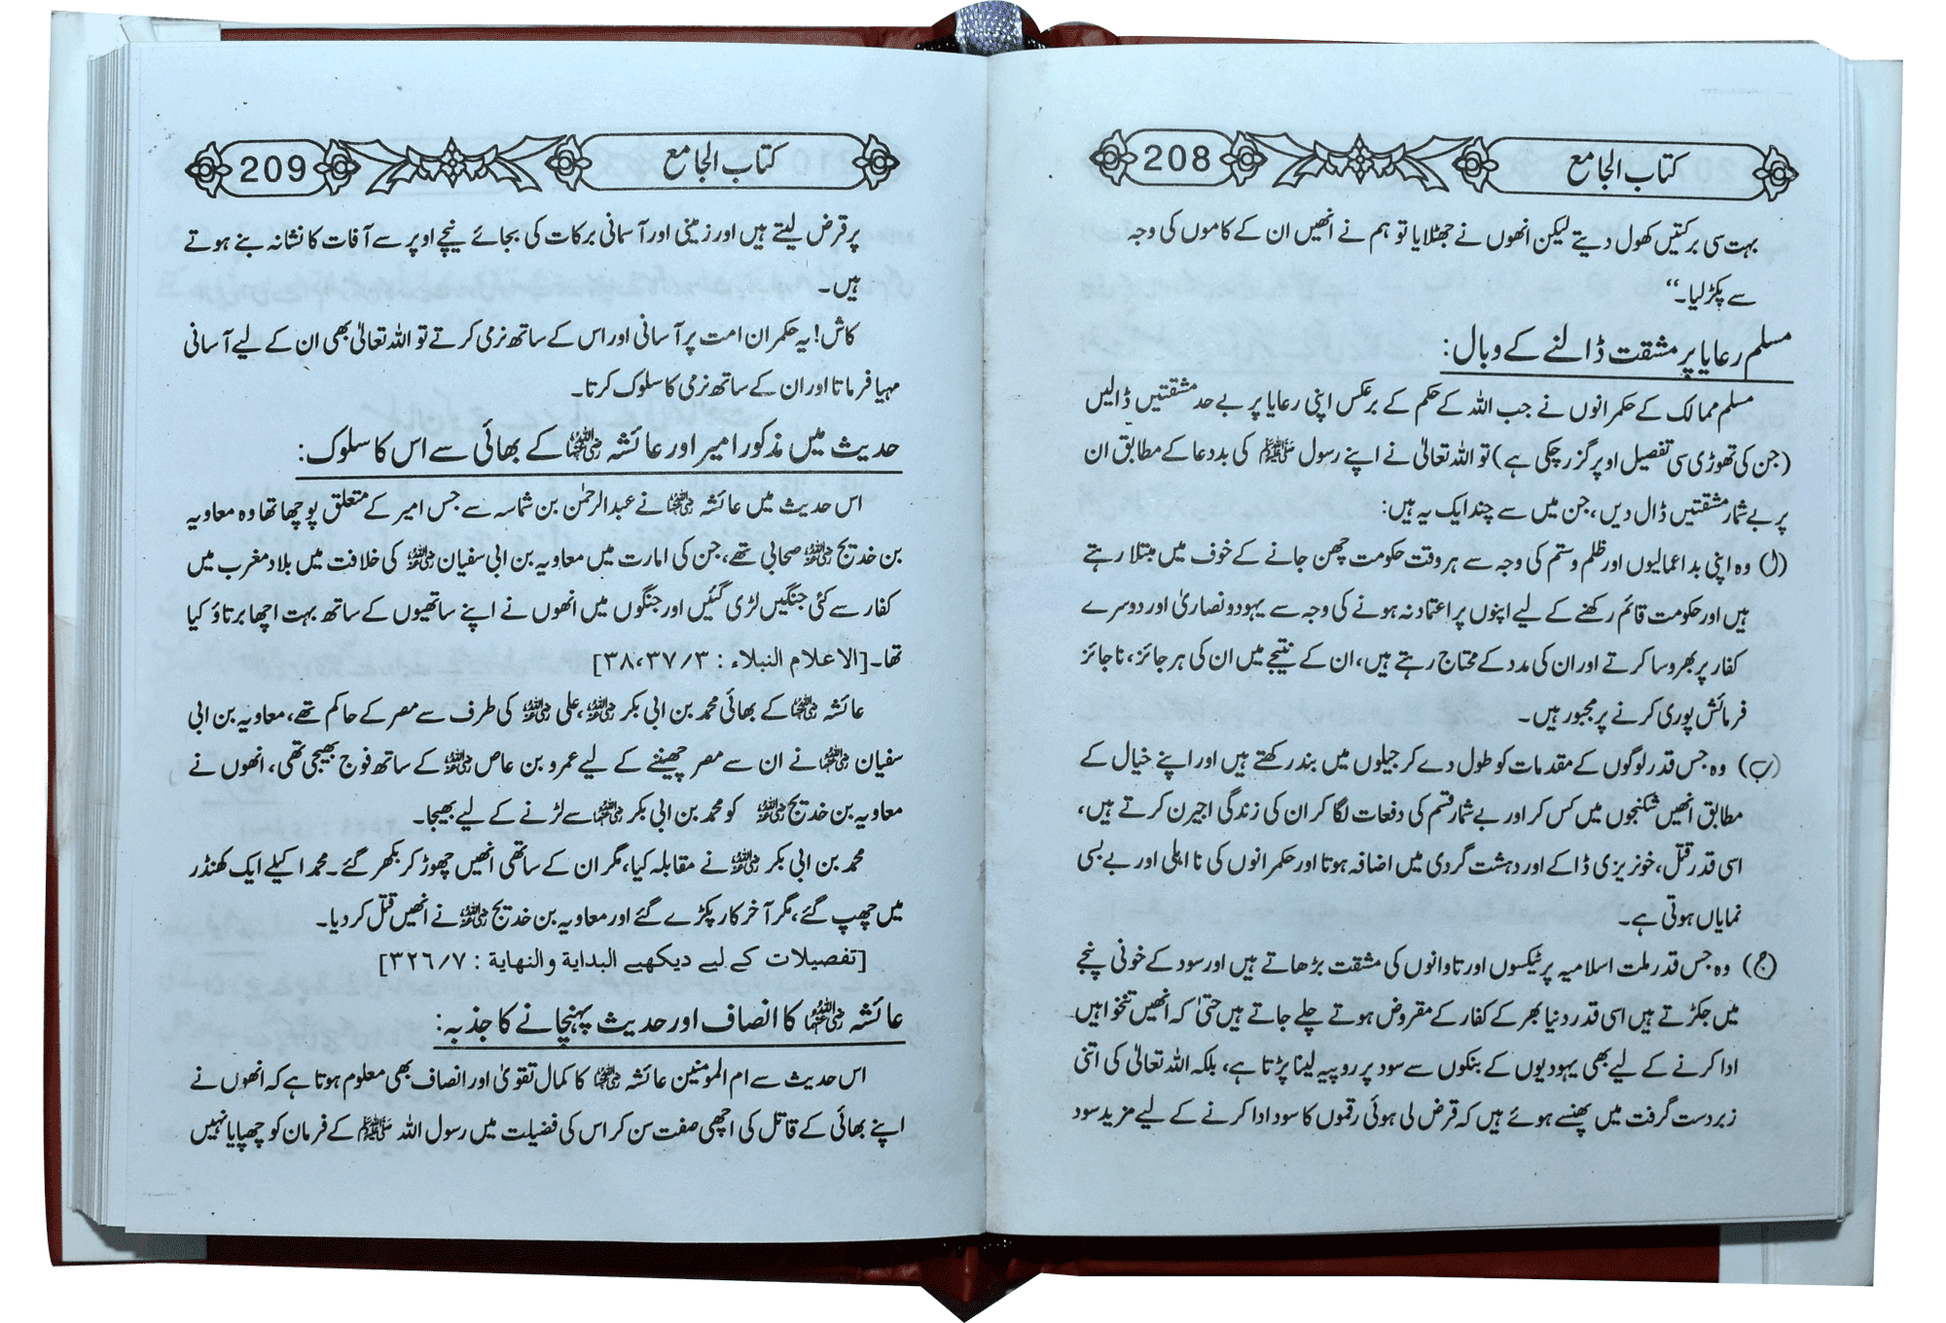 کتاب الجامع
208
بہت سی برکتیں کھول دیتے لیکن انھوں نے جھٹلایا تو ہم نے انھیں ان کے کاموں کی وجہ
سے پکڑ لیا۔“
مسلم رعایا پر مشقت ڈالنے کے وبال:
مسلم ممالک کے حکمرانوں نے جب اللہ کے حکم کے برعکس اپنی رعایا پر بے حد مشقتیں ڈالیں
(جن کی تھوڑی سی تفصیل اوپر گزر چکی ہے) تو اللہ تعالیٰ نے اپنے رسول ﷺ کی بددعا کے مطابق ان
پر بے شمار مشقتیں ڈال دیں، جن میں سے چند ایک یہ ہیں:
(ا) وہ اپنی بداعمالیوں اور ظلم و ستم کی وجہ سے ہر وقت حکومت چھن جانے کے خوف میں مبتلا رہتے
ہیں اور حکومت قائم رکھنے کے لیے اپنوں پر اعتماد نہ ہونے کی وجہ سے یہود و نصاریٰ اور دوسرے
کفار پر بھروسا کرتے اور ان کی مدد کے محتاج رہتے ہیں، ان کے نتیجے میں ان کی ہر جائز، ناجائز
فرمائش پوری کرنے پر مجبور ہیں۔
(ب) وہ جس قدر لوگوں کے مقدمات کو طول دے کر جیلوں میں بند رکھتے ہیں اور اپنے خیال کے
مطابق انھیں شکنجوں میں کس کر اور بے شمار قسم کی دفعات لگا کر ان کی زندگی اجیرن کرتے ہیں،
اسی قدر قتل، خونریزی ڈاکے اور دہشت گردی میں اضافہ ہوتا اور حکمرانوں کی نااہلی اور بے بسی
نمایاں ہوتی ہے۔
(ج) وہ جس قدر ملت اسلامیہ پر ٹیکسوں اور تاوانوں کی مشقت بڑھاتے ہیں اور سود کے خونی پنجے
میں جکڑتے ہیں اسی قدر دنیا بھر کے کفار کے مقروض ہوتے چلے جاتے ہیں حتیٰ کہ انھیں تنخواہیں
ادا کرنے کے لیے بھی یہودیوں کے بنکوں سے سود پر روپیہ لینا پڑتا ہے، بلکہ اللہ تعالیٰ کی اتنی
زبردست گرفت میں پھنسے ہوئے ہیں کہ قرض لی ہوئی رقموں کا سود ادا کرنے کے لیے مزید سود
کتاب الجامع
209
پر قرض لیتے ہیں اور زمینی اور آسمانی برکات کی بجائے نیچے اوپر سے آفات کا نشانہ بنے ہوتے
ہیں۔
کاش! یہ حکمران امت پر آسانی اور اس کے ساتھ نرمی کرتے تو اللہ تعالیٰ بھی ان کے لیے آسانی
مہیا فرماتا اور ان کے ساتھ نرمی کا سلوک کرتا۔
حدیث میں مذکور امیر اور عائشہ رضی اللہ عنہا کے بھائی سے اس کا سلوک:
اس حدیث میں عائشہ رضی اللہ عنہا نے عبدالرحمٰن بن شماسہ سے جس امیر کے متعلق پوچھا تھا وہ معاویہ
بن خدیج رضی اللہ عنہ صحابی تھے، جن کی امارت میں معاویہ بن ابی سفیان رضی اللہ عنہ کی خلافت میں بلاد مغرب میں
کفار سے کئی جنگیں لڑی گئیں اور جنگوں میں انھوں نے اپنے ساتھیوں کے ساتھ بہت اچھا برتاؤ کیا
تھا۔ [الاعلام النبلاء : ۳/۳۷،۳۸]
عائشہ رضی اللہ عنہا کے بھائی محمد بن ابی بکر رضی اللہ عنہ، علی رضی اللہ عنہ کی طرف سے مصر کے حاکم تھے، معاویہ بن ابی
سفیان رضی اللہ عنہ نے ان سے مصر چھیننے کے لیے عمرو بن عاص رضی اللہ عنہ کے ساتھ فوج بھیجی تھی، انھوں نے
معاویہ بن خدیج رضی اللہ عنہ کو محمد بن ابی بکر رضی اللہ عنہما سے لڑنے کے لیے بھیجا۔
محمد بن ابی بکر رضی اللہ عنہ نے مقابلہ کیا، مگر ان کے ساتھی انھیں چھوڑ کر بکھر گئے۔ محمد اکیلے ایک کھنڈر
میں چھپ گئے، مگر آخر کار پکڑے گئے اور معاویہ بن خدیج رضی اللہ عنہ نے انھیں قتل کر دیا۔
[تفصیلات کے لیے دیکھیے البدایة والنهایة : ۷/۳۲۶]
عائشہ رضی اللہ عنہا کا انصاف اور حدیث پہنچانے کا جذبہ:
اس حدیث سے ام المومنین عائشہ رضی اللہ عنہا کا کمال تقویٰ اور انصاف بھی معلوم ہوتا ہے کہ انھوں نے
اپنے بھائی کے قاتل کی اچھی صفت سن کر اس کی فضیلت میں رسول اللہ ﷺ کے فرمان کو چھپایا نہیں